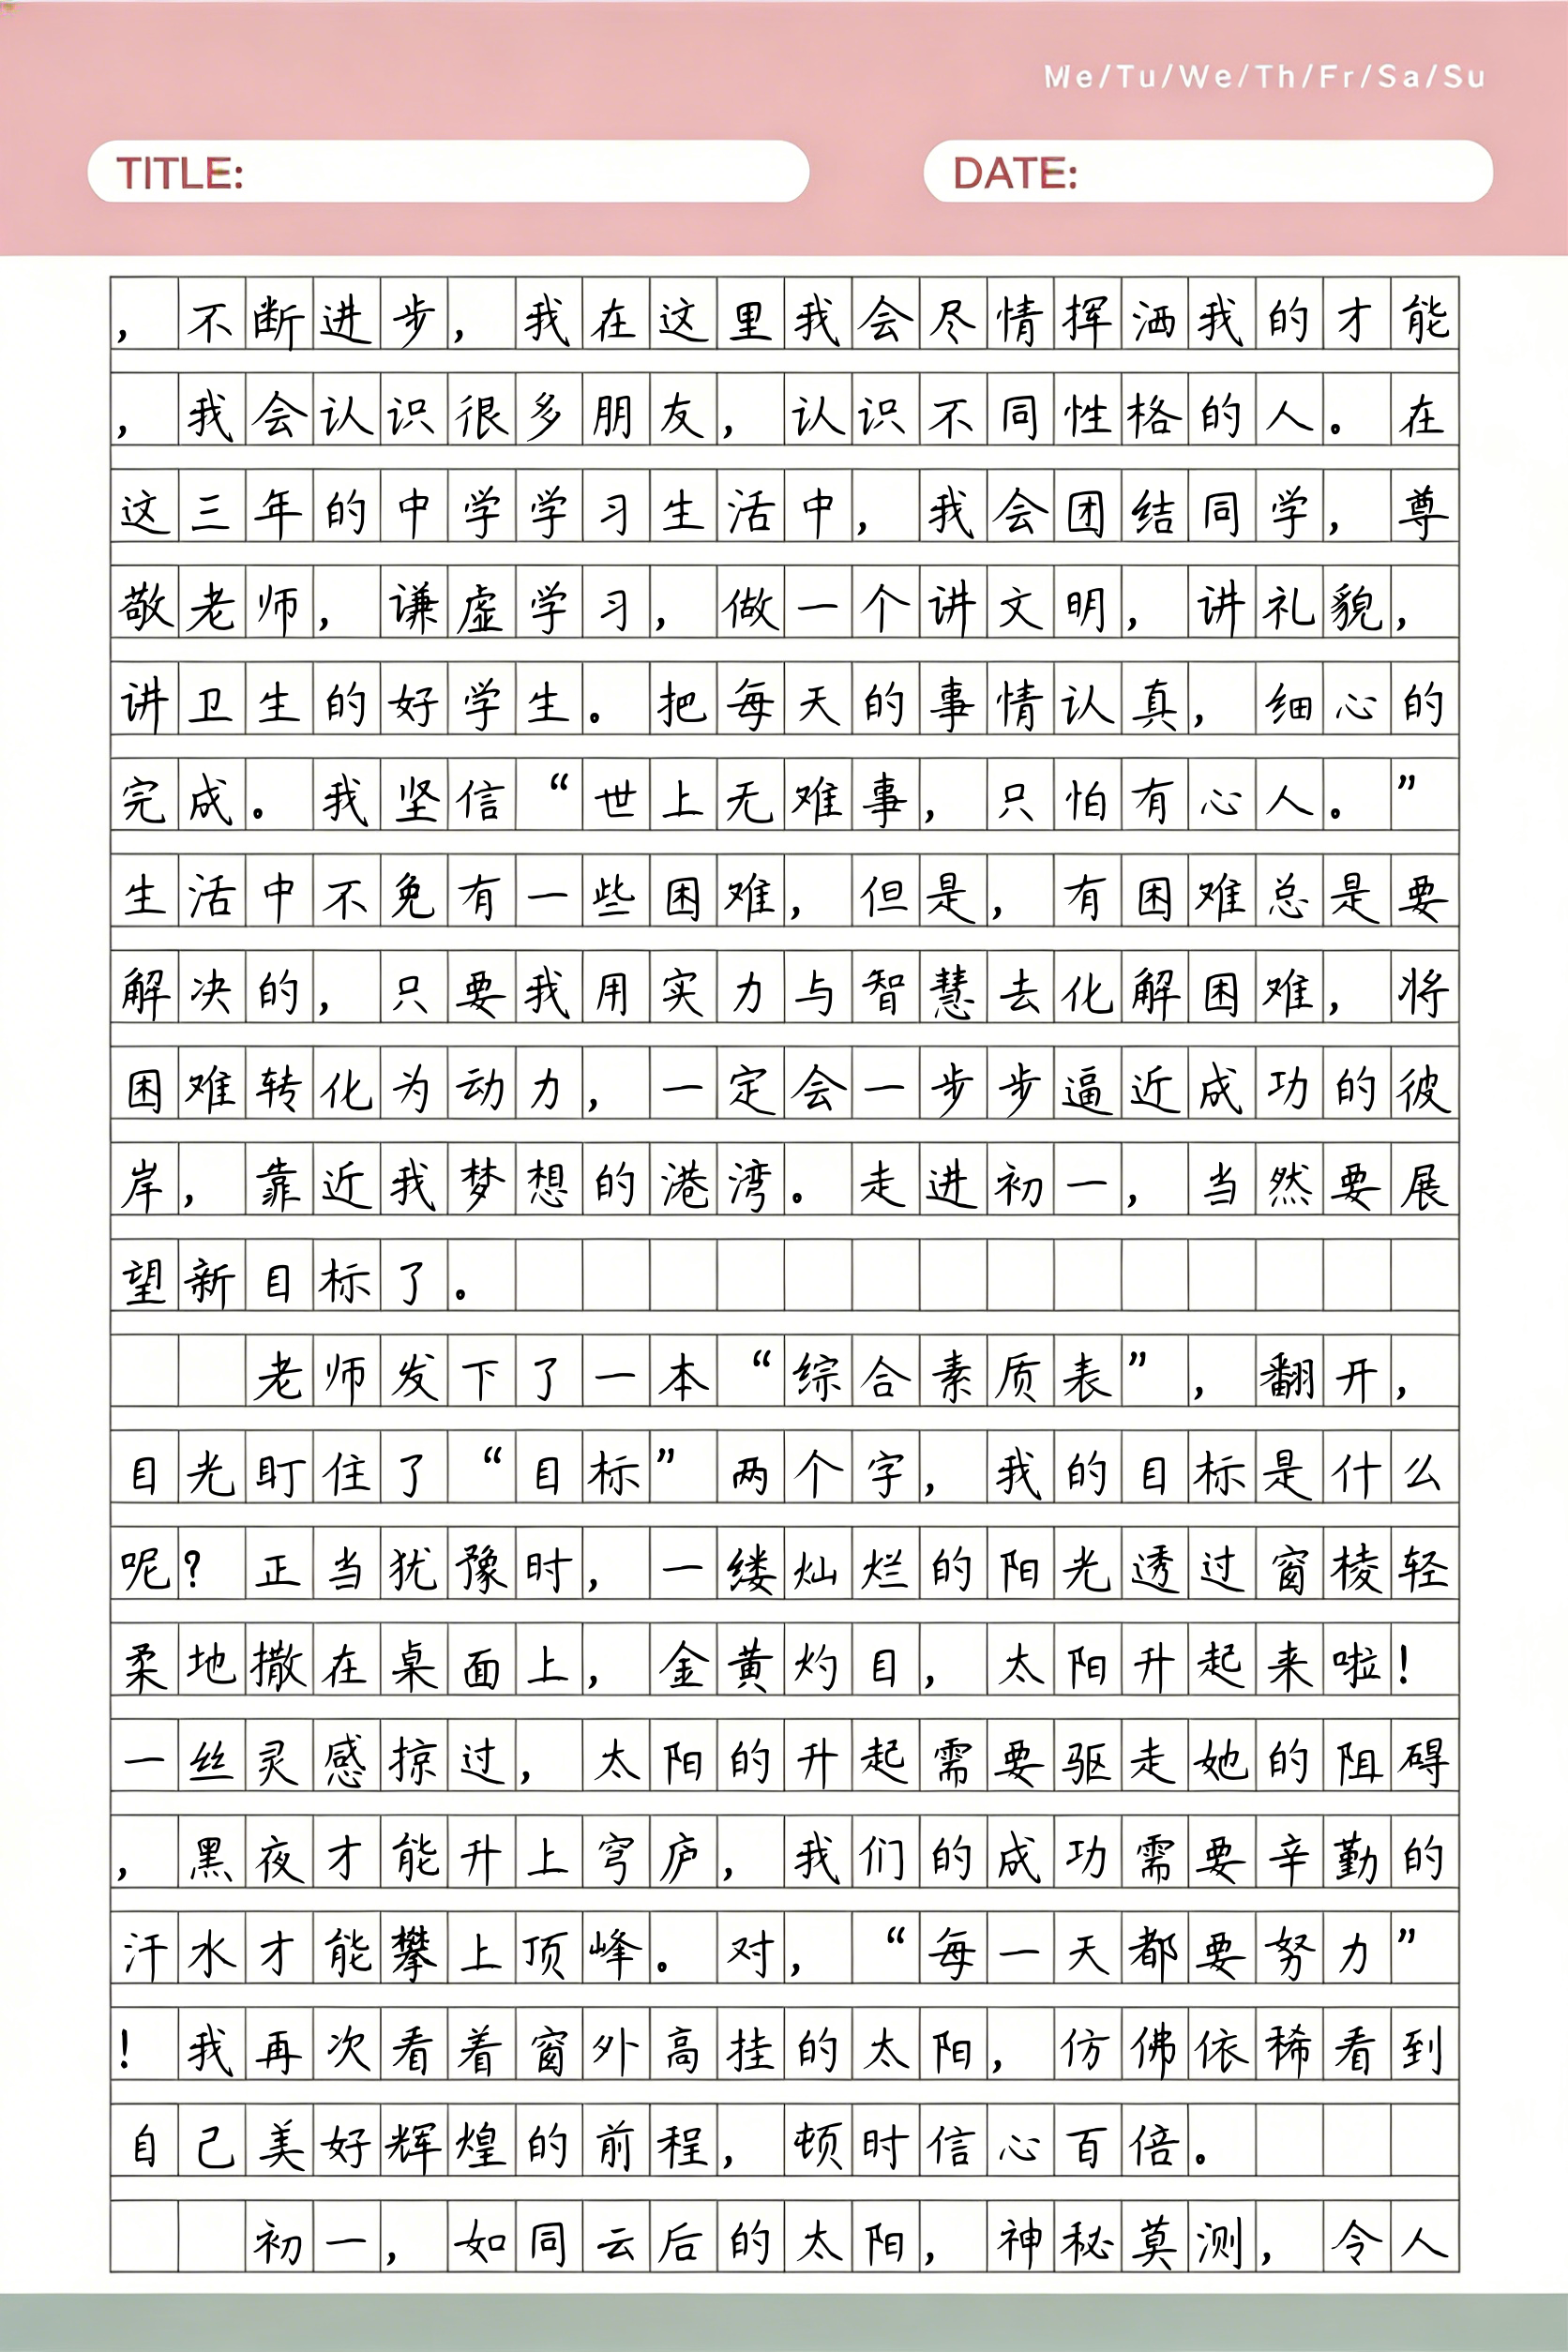 Me/Tu/We/Th/Fr/Sa/Su
TITLE: DATE:
，不断进步，我在这里我会尽情挥洒我的才能
，我会认识很多朋友，认识不同性格的人。在
这三年的中学学习生活中，我会团结同学，尊
敬老师，谦虚学习，做一个讲文明，讲礼貌，
讲卫生的好学生。把每天的事情认真，细心的
完成。我坚信“世上无难事，只怕有心人。”
生活中不免有一些困难，但是，有困难总是要
解决的，只要我用实力与智慧去化解困难，将
困难转化为动力，一定会一步步逼近成功的彼
岸，靠近我梦想的港湾。走进初一，当然要展
望新目标了。
老师发下了一本“综合素质表”，翻开，
目光盯住了“目标”两个字，我的目标是什么
呢？正当犹豫时，一缕灿烂的阳光透过窗棱轻
柔地撒在桌面上，金黄灼目，太阳升起来啦！
一丝灵感掠过，太阳的升起需要驱走她的阻碍
，黑夜才能升上穹庐，我们的成功需要辛勤的
汗水才能攀上顶峰。对，“每一天都要努力”
！我再次看着窗外高挂的太阳，仿佛依稀看到
自己美好辉煌的前程，顿时信心百倍。
初一，如同云后的太阳，神秘莫测，令人